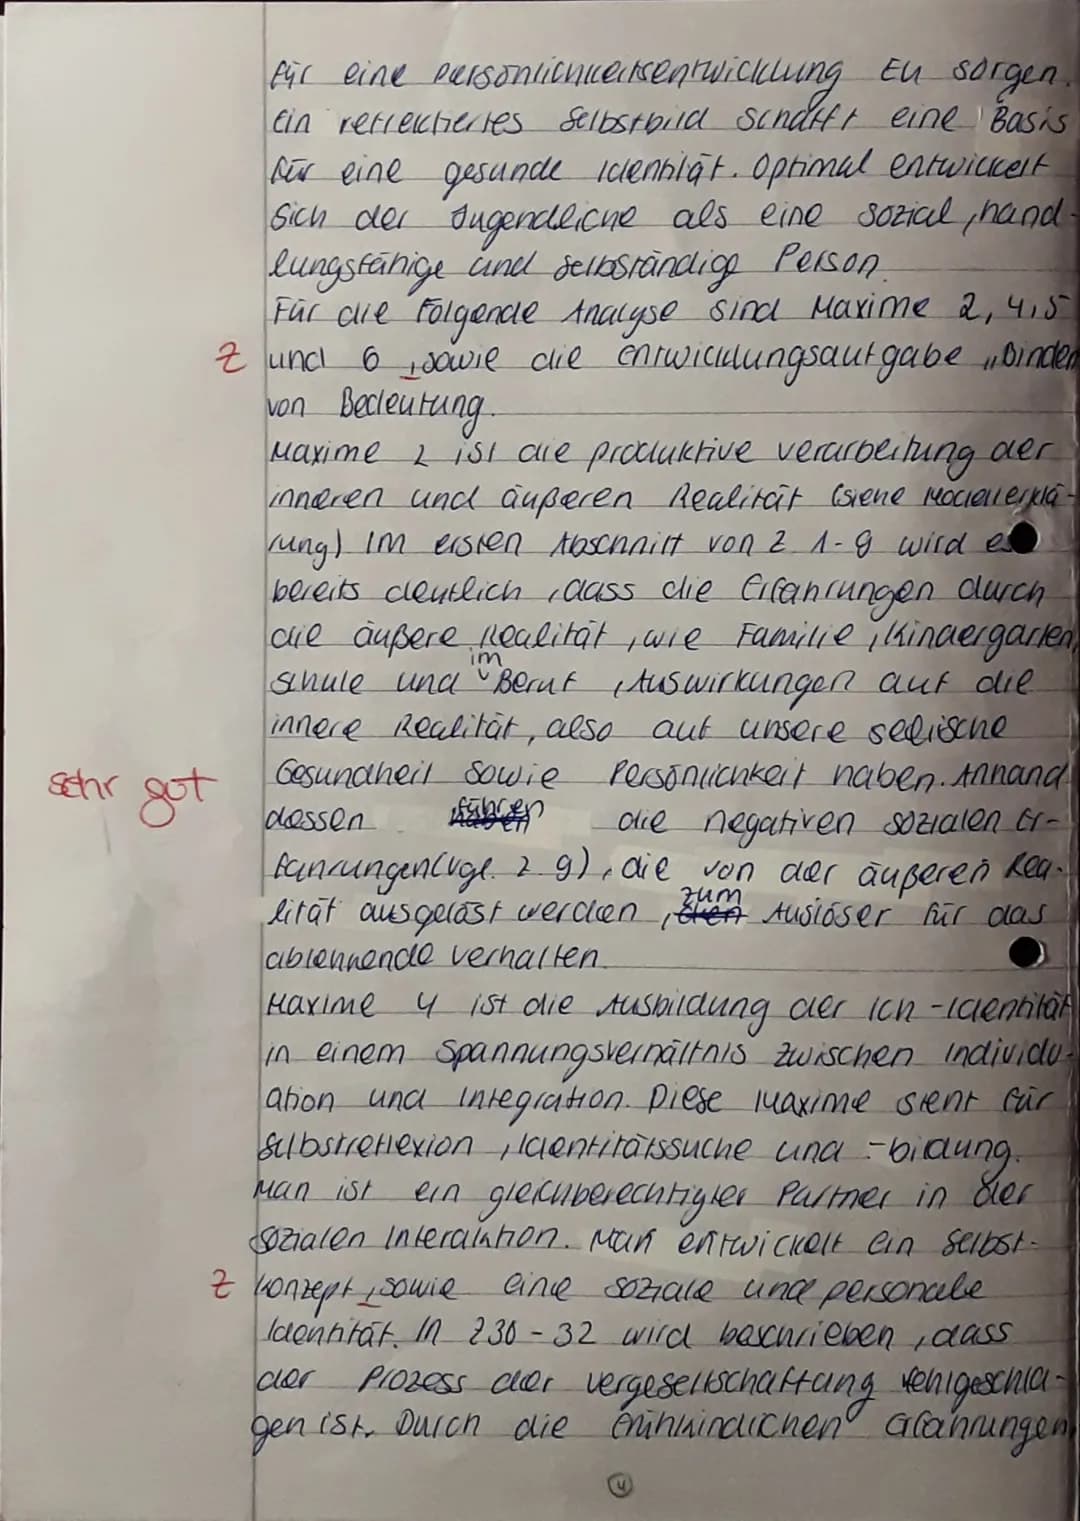 für eine Persönlichkeitsentwicklung zu sorgen.
Ein reflektiertes Selbstbild schafft eine Basis
für eine gesunde Identität. Optimal entwickelt
sich der Jugendliche als eine sozial, hand-
lungsfähige und selbständige Person.
Für die folgende Analyse sind Maxime 2, 4, 5
Z und 6, sowie die Entwicklungsaufgabe „Binden
von Bedeutung.
Maxime 2 ist die produktive Verarbeitung der
inneren und äußeren Realität (siehe Modellerklä-
rung) Im ersten Abschnitt von Z. 1-9 wird es
bereits deutlich, dass die Erfahrungen durch
die äußere Realität, wie Familie, Kindergarten,
im
Schule und Beruf, Auswirkungen auf die
innere Realität, also auf unsere seelische
sehr gut Gesundheit sowie Persönlichkeit haben. Anhand
dessen führen die negativen sozialen Er-
fahrungen (vgl. Z. 9), die von der äußeren Rea-
lität ausgelöst werden, zum Auslöser für das
ablehnende Verhalten.
Maxime 4 ist die Ausbildung der Ich-Identität
in einem Spannungsverhältnis zwischen Individu-
ation und Integration. Diese Maxime steht für
Selbstreflexion, Identitätssuche und -bildung.
Man ist ein gleichberechtigter Partner in der
sozialen Interaktion. Man entwickelt ein Selbst-
Z konzept, sowie eine soziale und personale
Identität. In Z 30-32 wird beschrieben, dass
der Prozess der Vergesellschaftung fehlgeschla-
gen ist. Durch die frühkindlichen Erfahrungen,
4